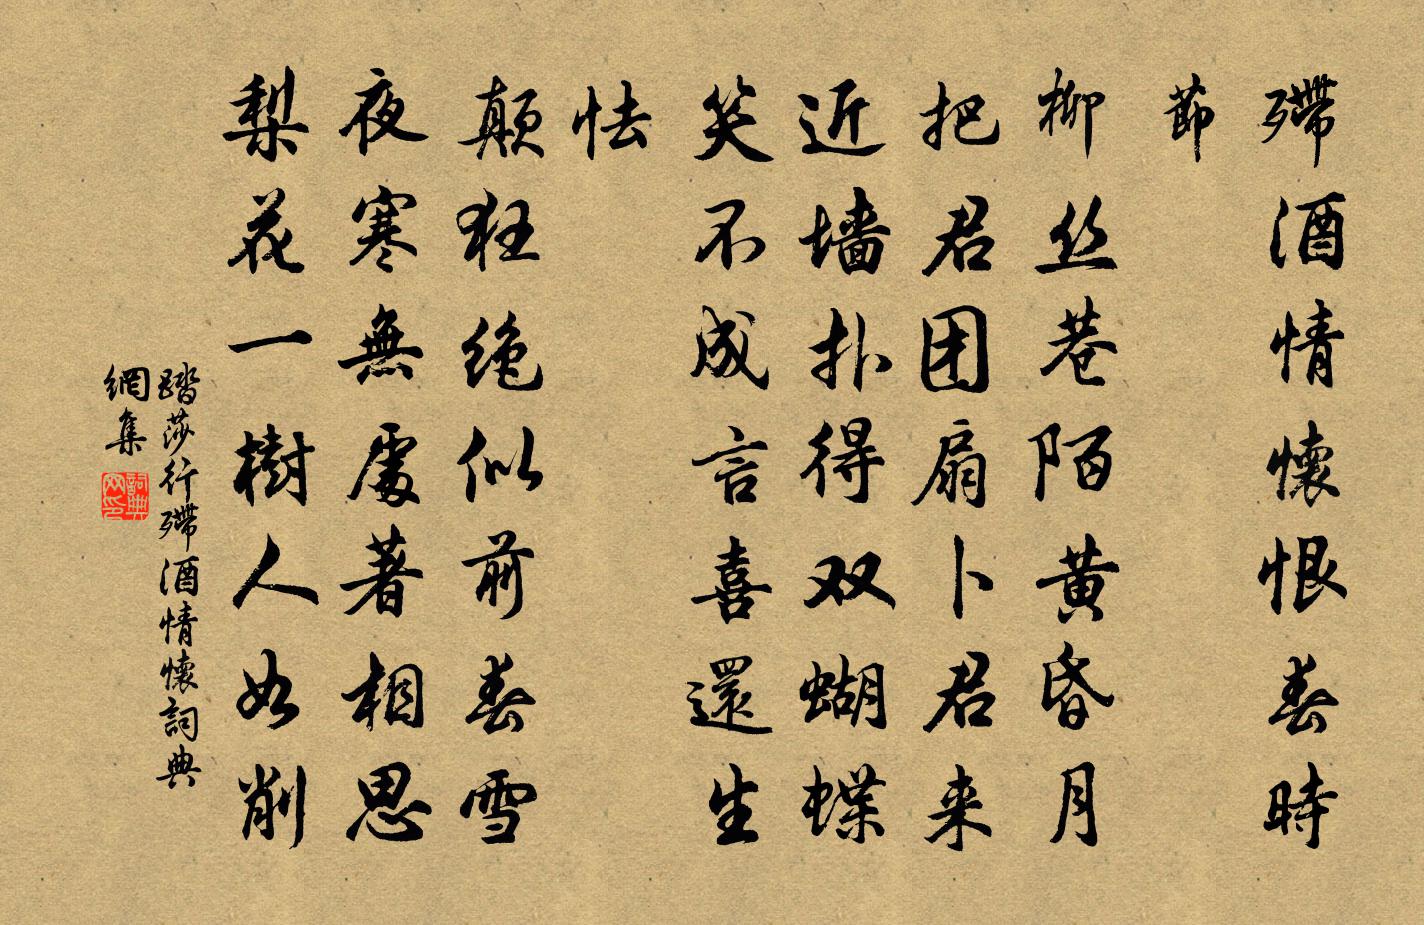 殢酒情懷恨春時
節
柳丝巷陌黄昏月
把君团扇卜君来
近墙扑得双蝴蝶
笑不成言喜還生
怯
颠狂绝似前春雪
夜寒無處著相思
梨花一樹人如削
踏莎行殢酒情懷詞典
網集
詞典
网印